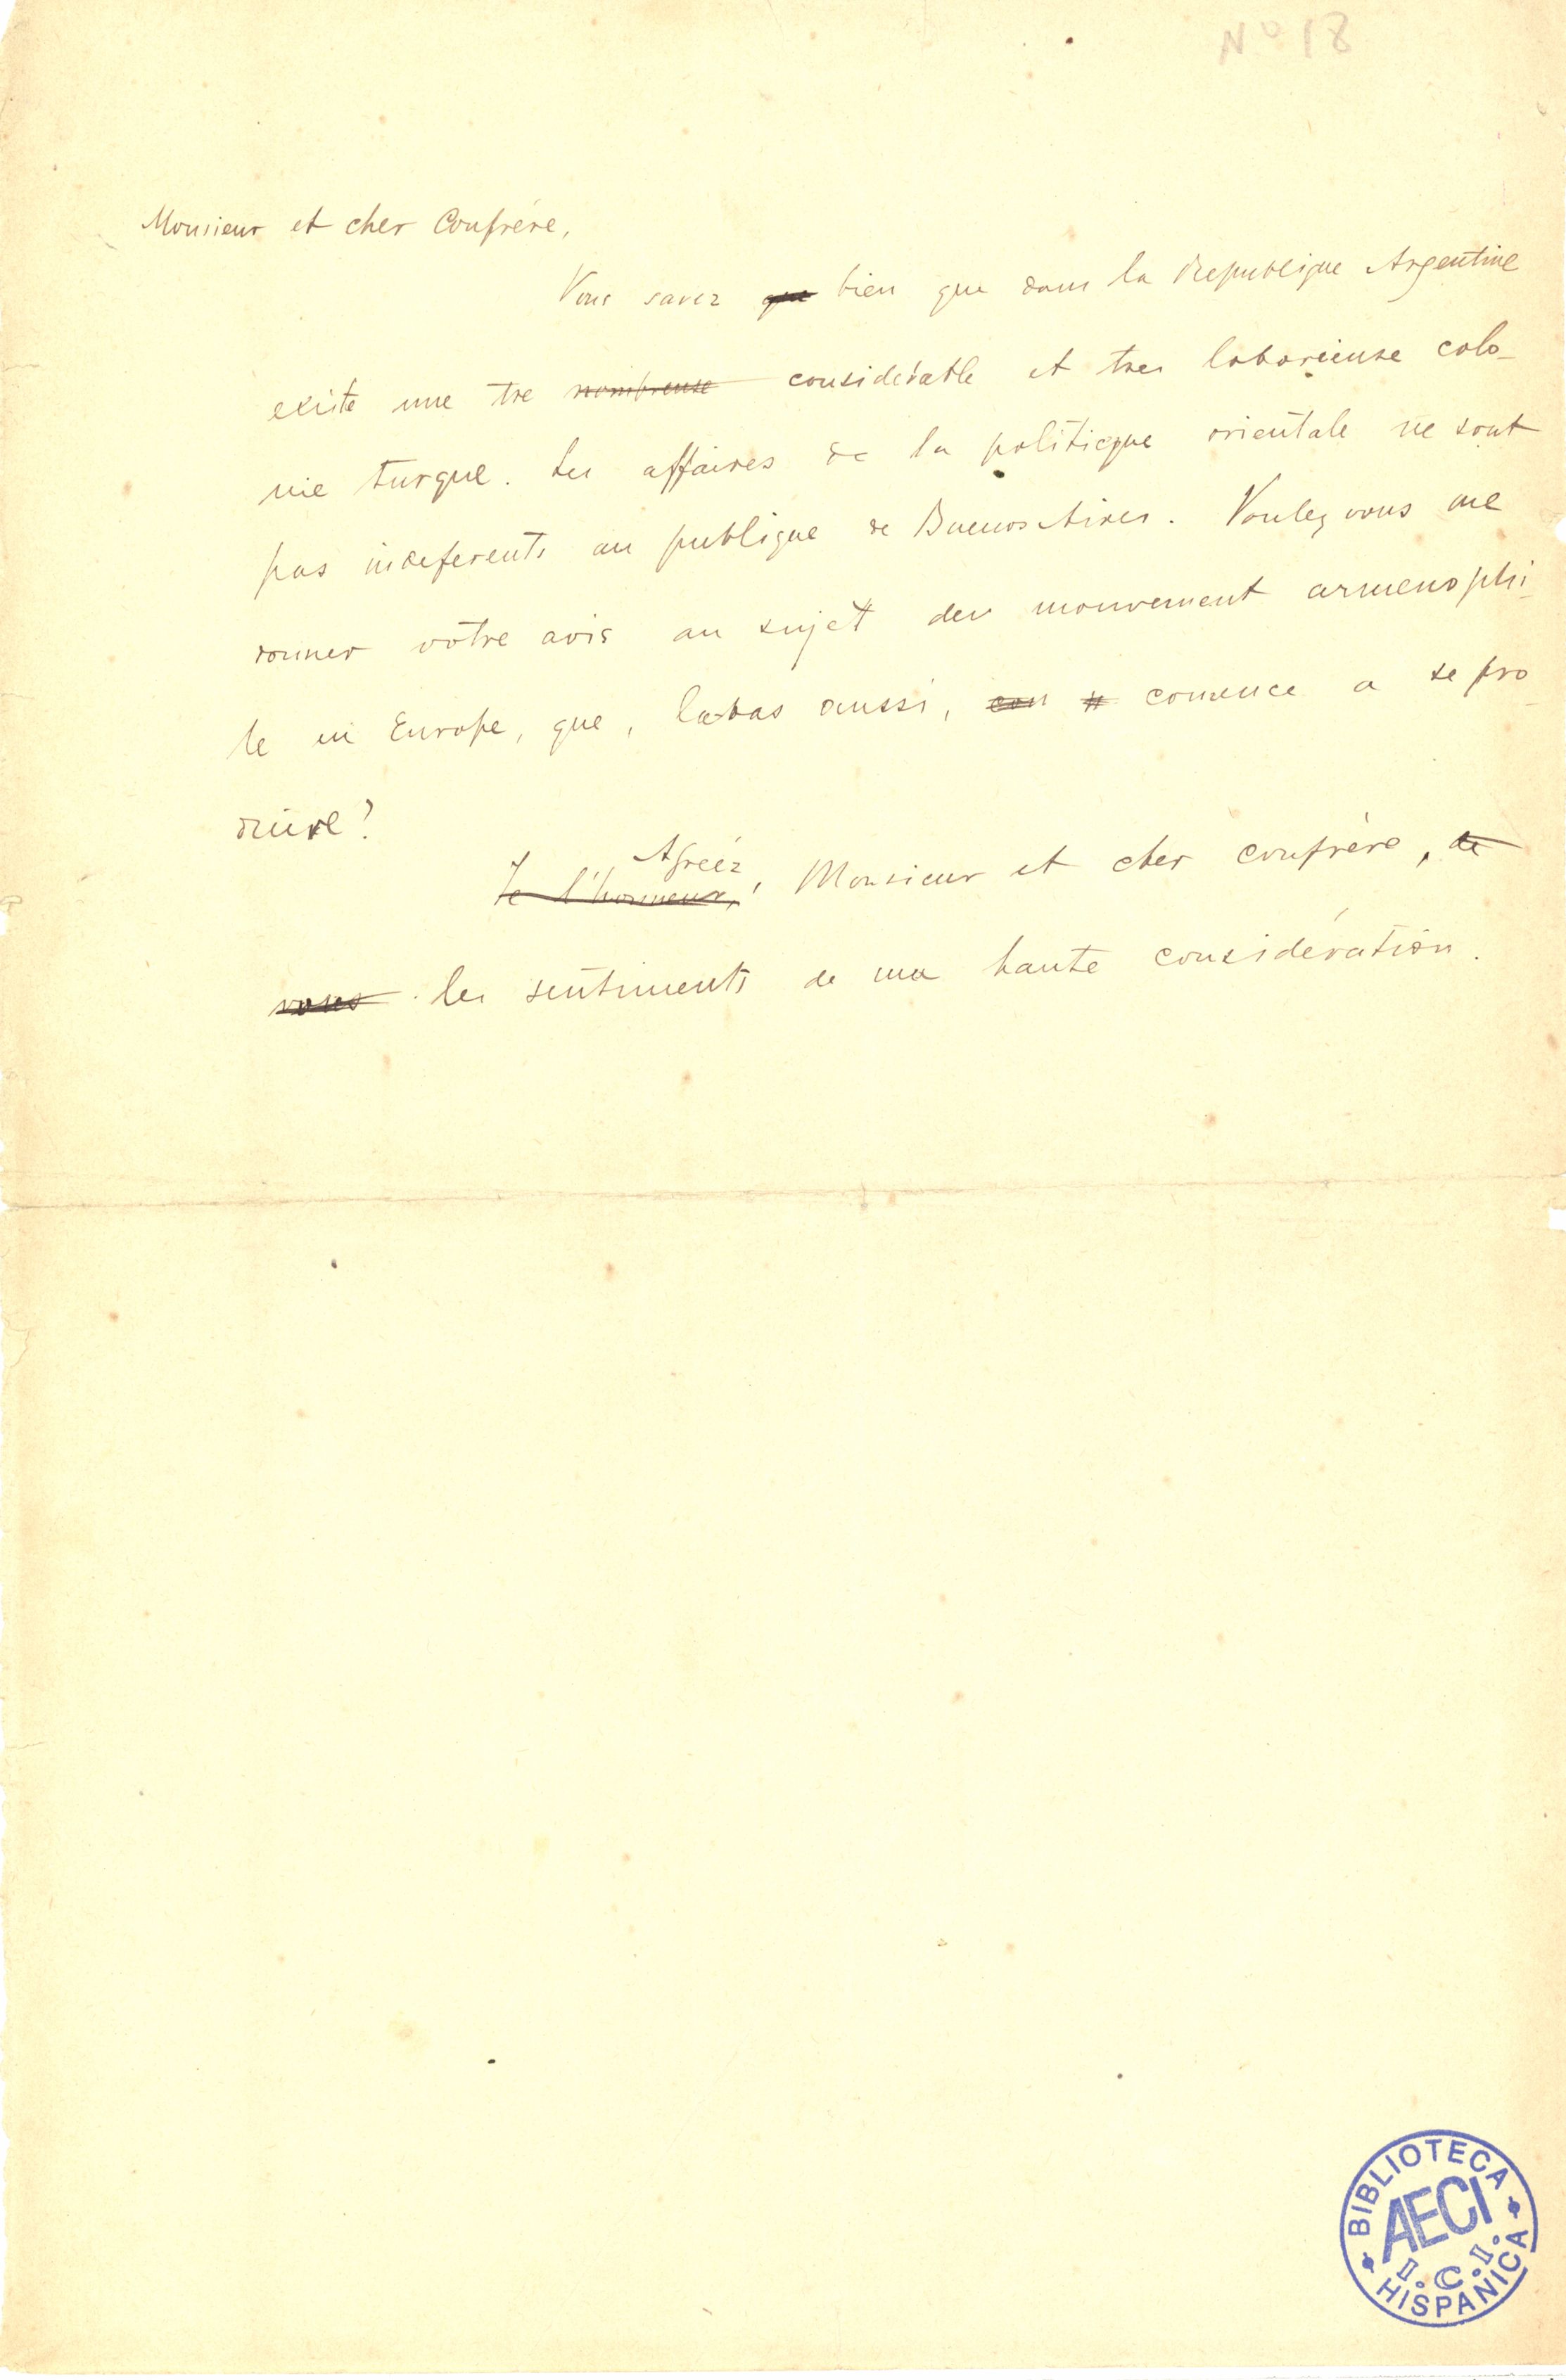 Nº 18
Monsieur et cher Confrère,
Vous savez que bien que dans la Republique Argentine
existe une tre nombreuse considerable et tres laborieuse colo-
nie turque. Les affaires de la politicque orientale ne sont
pas indeferents au publique de Buenos Aires. Voulez vous me
donner votre avis au sujet deu mouvement armenophi-
le en Europe, que, labas aussi, con comence a se pro-
duire?
Agreéz
Je l'honneur, , Monsieur et cher confrère, de
vous les sentiments de ma haute considération.
BIBLIOTECA
AECI
I.C.I.
HISPANICA